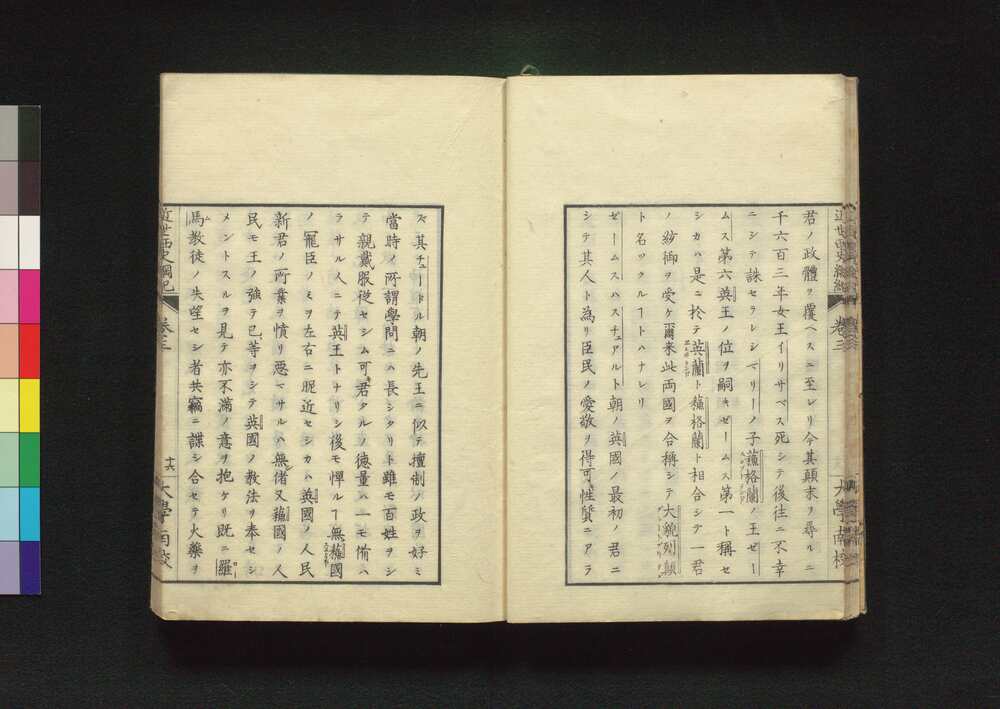 君ノ政體ヲ覆ヘスニ至レリ今其顚末ヲ尋ルニ
千六百三年女王イリサベス死シテ後往ニ不幸
ニシテ誅セラレシマリーノ子蘓格蘭ノ王ゼー
ムス第六英王ノ位ヲ嗣キゼームス第一ト稱セ
シカハ是ニ於テ英蘭ト蘓格蘭ト相合シテ一君
ノ統御ヲ受ケ爾来此両國ヲ合稱シテ大貌列顛
ト名ツクルヿトハナレリ
ゼームスハスチュアルト朝ノ英國ノ最初ノ君ニ
シテ其人ト為リ臣民ノ愛敬ヲ得可キ性質ニアラ
ス其チュードル朝ノ先王ニ似テ擅制ノ政ヲ好ミ
當時ノ所謂學問ニハ長シタリト雖モ百姓ヲシ
テ親戴服従セシム可キ君タルノ德量ハ一モ備ハ
ラサル人ニテ英王トナリシ後モ憚ルヿ無蘓國
ノ寵臣ノミヲ左右ニ昵近セシカハ英國ノ人民
新君ノ所業ヲ憤リ惡マサルハ無シ又蘓國ノ人
民モ王ノ強テ己等ヲシテ英國ノ教法ヲ奉セシ
メントスルヲ見テ亦不滿ノ意ヲ抱ケリ既ニ羅
馬教徒ノ失望セシ者共竊ニ諜シ合セテ火藥ヲ
近世西史綱紀
卷三
十六
大學南校